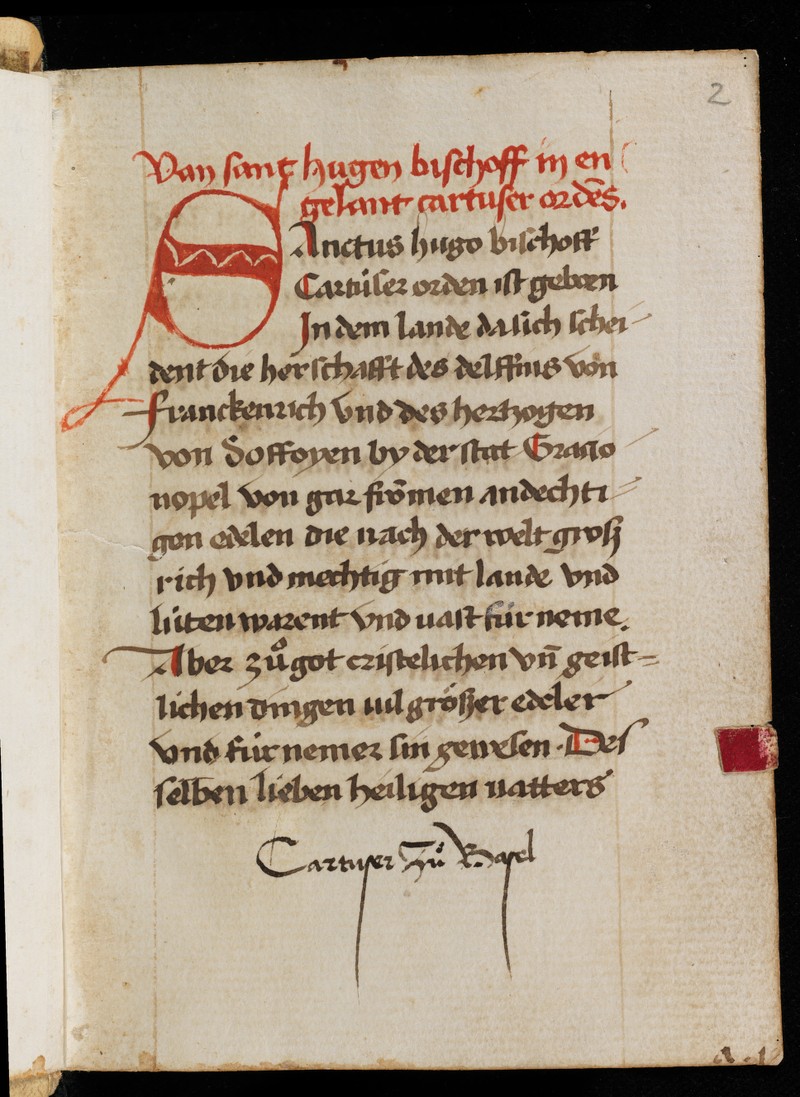 2
Van sant hugen bischoff in en
gelant cartuser ordēs.
SAnctus hugo bischoff
Cartúser orden ist geboren
In dem lande da sich schei-
dent die herschafft des delffins von
Franckenrich vnd des hertzogen
von Soffoyen by der stat Gracio
nopel von gar frōmen andechti-
gen edelen die nach der welt groß
rich vnd mechtig mit lande vnd
lúten warent vnd uast fúrneme.
Aber zuͦ got cristelichen vn̄ geist=
lichen dingen uil größer edeler
vnd fúrnemer sin gewesen. Des
selbē̄n lieben heiligen uatters
Cartuser Zuͦ Basel